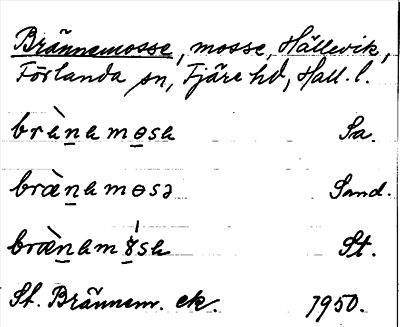 Brännemosse, mosse, Hällevik,
Förlanda sn, Fjäre hd, Hall. l.
brä̀namosa Sa.
bræ̀namosə Sand.
bræ̀namɤ́sa St.
St. Brännem. ek. 1950.